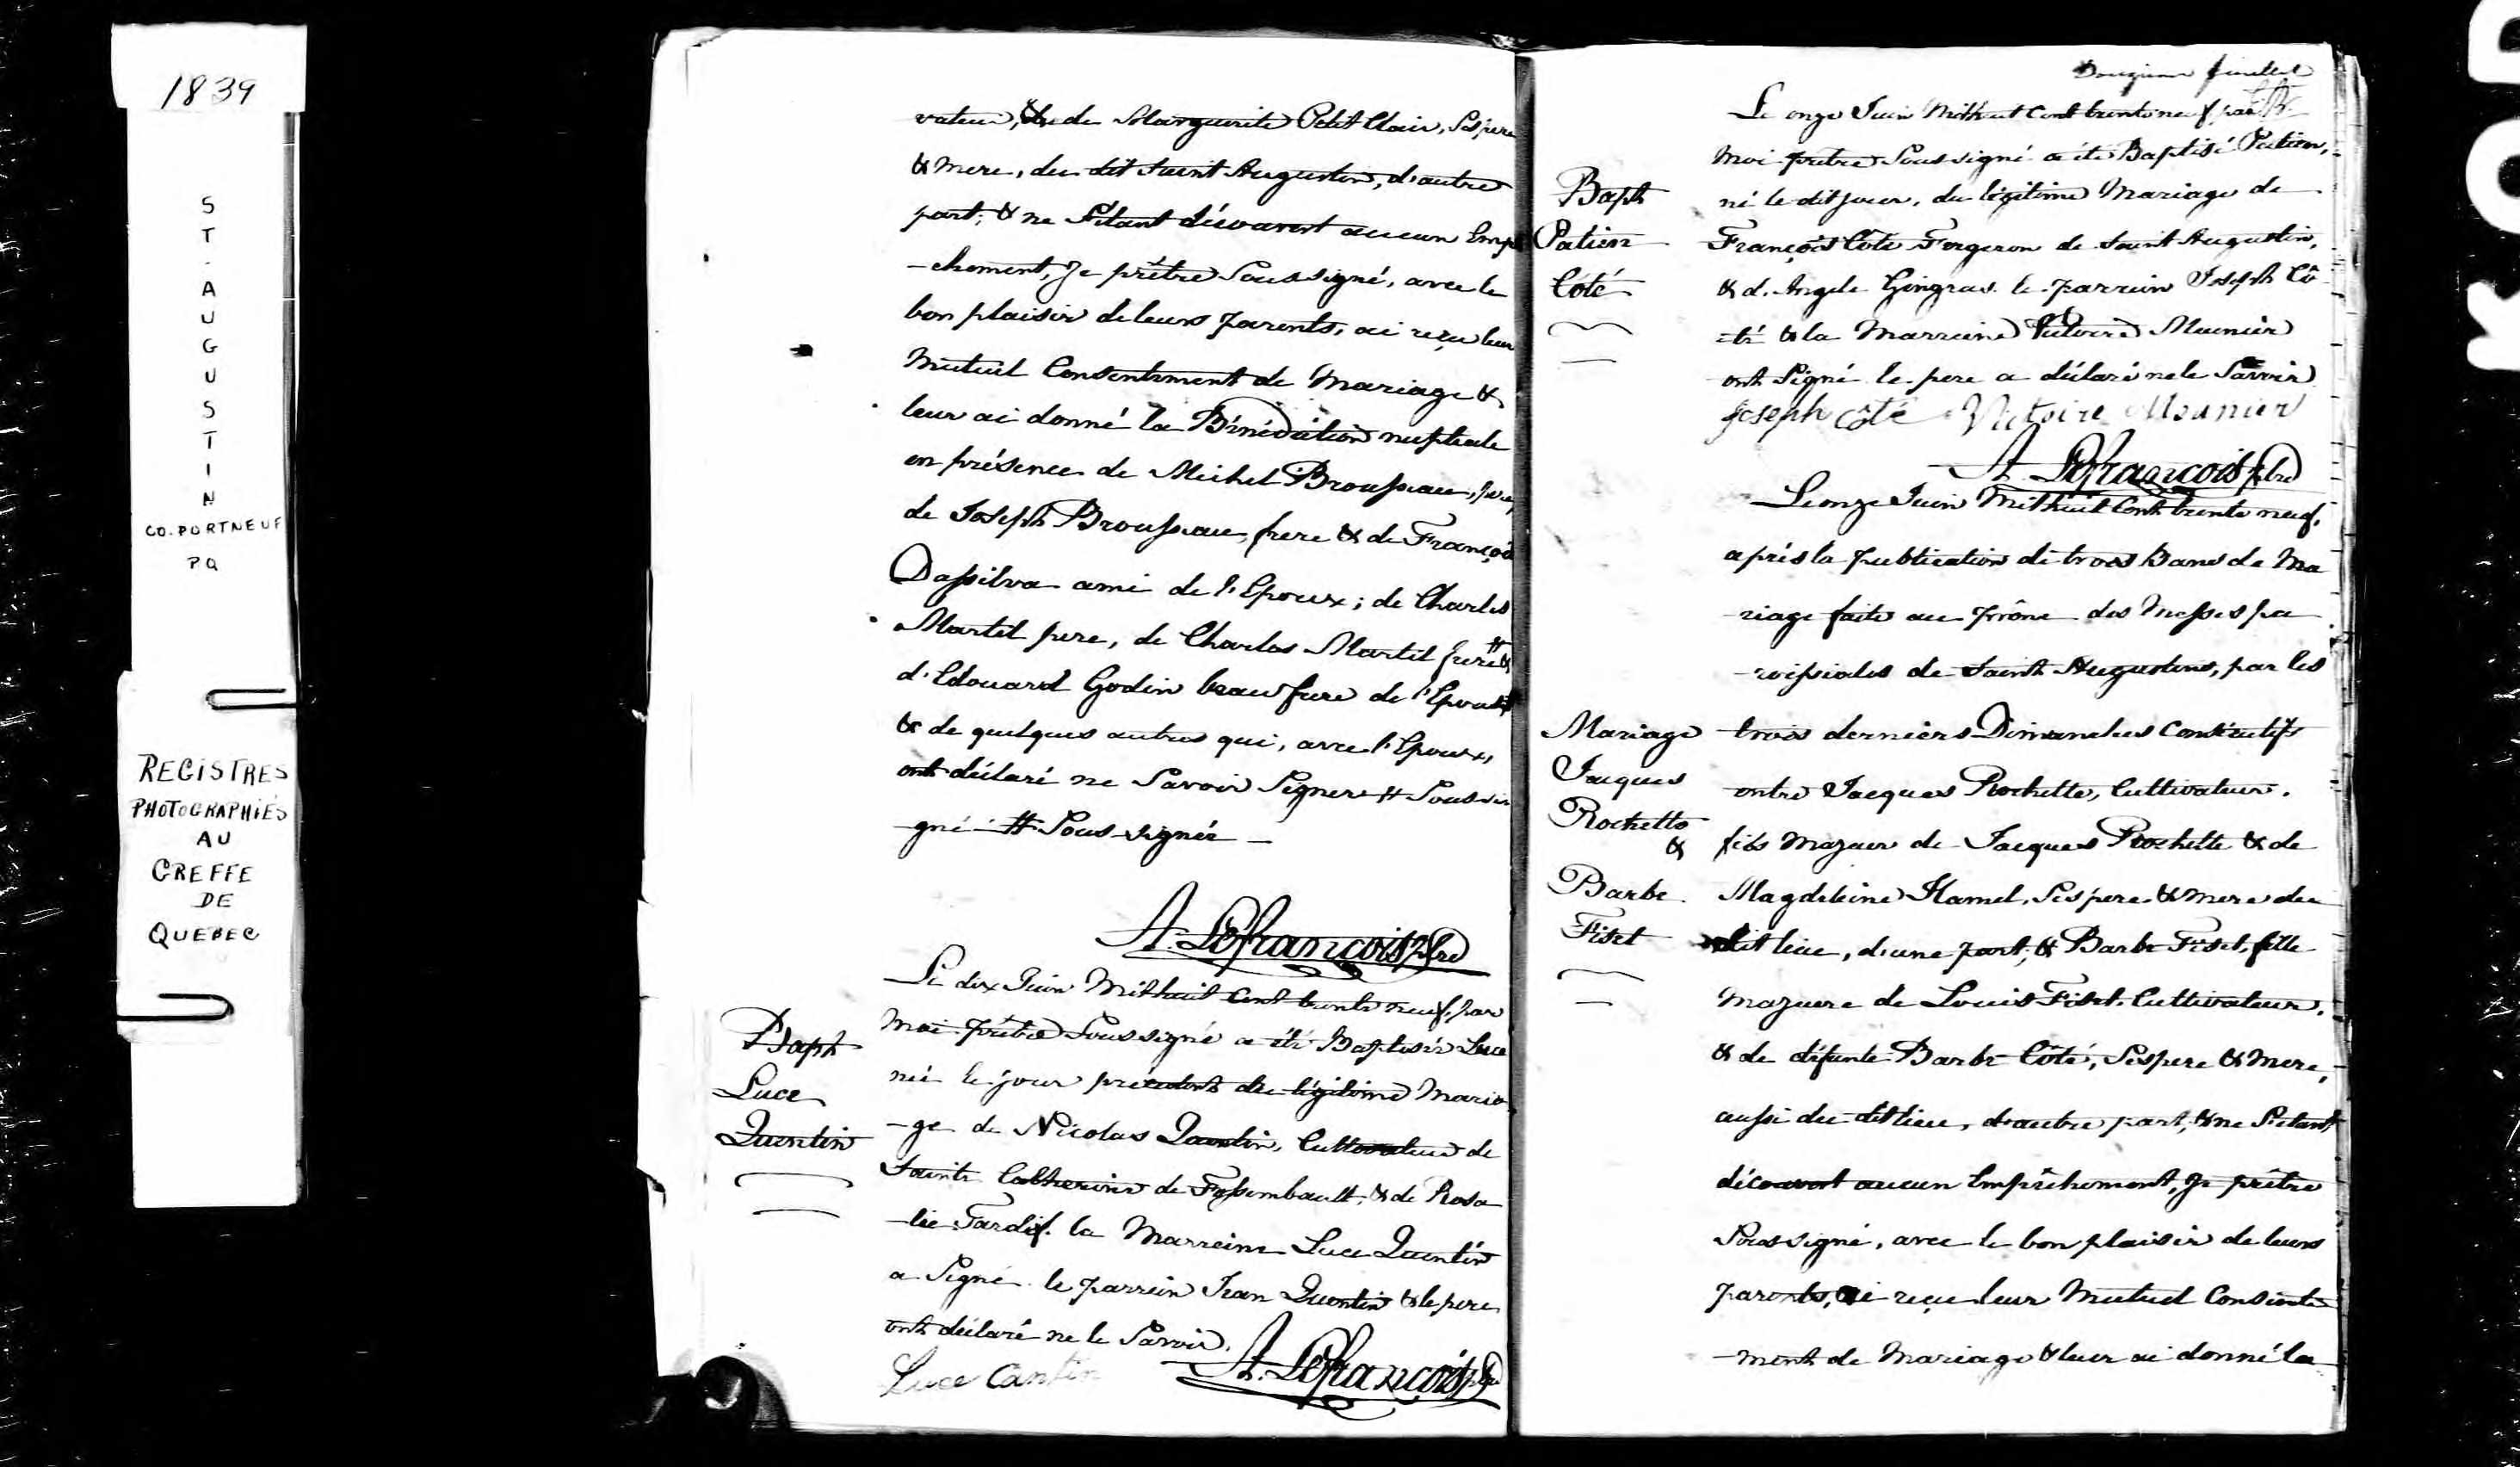 1839
ST. AUGUSTIN
CO. PORTNEUF
PQ
REGISTRES
PHOTOGRAPHIÉS
AU
GREFFE
DE
QUEBEC
vateur, & de Marguerite Petit Clair, Ses pere
& Mere, du dit Saint Augustin, d'autre
part; & ne S'étant découvert aucun Empê
-chement, Je prêtre Soussigné, avec le
bon plaisir de leurs parents, ai reçu leur
Mutuel Consentement de Mariage &
leur ai donné la Bénédiction nuptiale
en présence de Michel Brousseau, pere,
de Joseph Brousseau, frere & de François
Dassilva ami de l'Epoux; de Charles
Martel pere, de Charles Martel frere &
d'Edouard Godin beau frere de l'Epouse #
& de quelques autres qui, avec l'Epoux,
ont déclaré ne Savoir Signer # Soussi
-gné - # Sous-signés -
A. Lefrançois ptre
Baph
Luce
Quentin
Le dix Juin Mil huit Cent trente neuf, par
Moi prêtre Soussigné a été Baptisée Luce
née le jour précédent du légitime Maria
-ge de Nicolas Quentin, Cultivateur de
Sainte Catherine de Fossembault, & de Rosa
-lie Tardif. la Marreine Luce Quentin
a Signé. le parrein Jean Quentin & le pere
ont déclaré ne le Savoir.
Luce Cantin A. Lefrançois ptre
Douzieme feuillet
Le onze Juin Mil huit Cent trente neuf par
Baph
Patien
Côté
Moi prêtre Soussigné a été Baptisé Patien,
né le dit jour, du légitime Mariage de
François Côté Forgeron de Saint Augustin,
& d'Angele Gingras. le parrein Joseph Cô
-té & la Marreine Victoire Meunier
ont Signé le pere a déclaré ne le Savoir
Joseph Côté Victoire Meunier
A. Lefrançois ptre
Le onze Juin Mil huit Cent trente neuf,
après la publication de trois Bans de Ma
-riage faite au prône des Messes pa
-roissiales de Saint Augustin, par les
Mariage
Jacques
Rochette
&
Barbe
Fiset
trois derniers Dimanches Consécutifs
entre Jacques Rochette, Cultivateur.
fils Majeur de Jacques Rochette & de
Magdeleine Hamel, Ses pere & Mere du
dit lieu, d'une part; & Barbe Fiset, fille
Majeure de Louis Fiset, Cultivateur,
& de défunte Barbe Côté, Ses pere & Mere,
aussi du dit lieu, d'autre part; & ne S'étant
découvert aucun Empêchement, Je prêtre
Soussigné, avec le bon plaisir de leurs
parents, ai reçu leur Mutuel Consente
-ment de Mariage & leur ai donné la